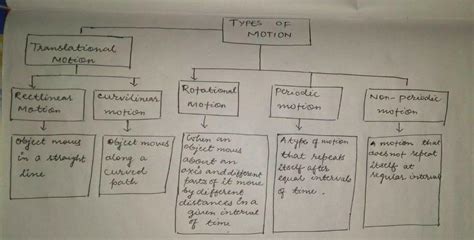 TYPES OF
MOTION
Translational
Motion
Rectlinear
Motion
Curvilinear
motion
Rotational
motion
Periodic
motion
Non-periodic
motion
Object moves
in a straight
line
Object moves
along a
curved
path
When an
object moves
about an
axis and different
parts of it move
by different
distances in a
given interval
of time
A type of motion
that repeats
itself after
equal intervals
of time.
A motion that
does not repeat
itself at
regular interval